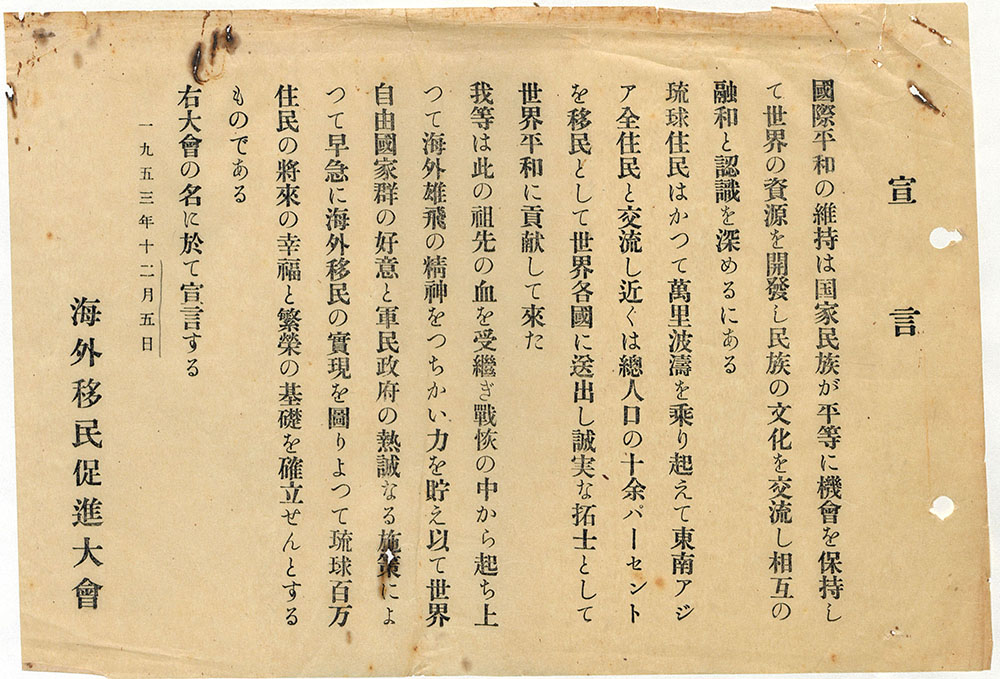 宣言
國際平和の維持は国家民族が平等に機會を保持し
て世界の資源を開發し民族の文化を交流し相互の
融和と認識を深めるにある
琉球住民はかつて萬里波濤を乘り起えて東南アジ
ア全住民と交流し近くは總人口の十余パーセント
を移民として世界各國に送出し誠実な拓士として
世界平和に貢献して來た
我等は此の祖先の血を受繼ぎ戰恢の中から起ち上
つて海外雄飛の精神をつちかい力を貯え以て世界
自由國家群の好意と軍民政府の熱誠なる施策によ
つて早急に海外移民の實現を圖りよつて琉球百万
住民の將來の幸福と繁榮の基礎を確立せんとする
ものである
右大會の名に於て宣言する
一九五三年十二月五日
海外移民促進大會